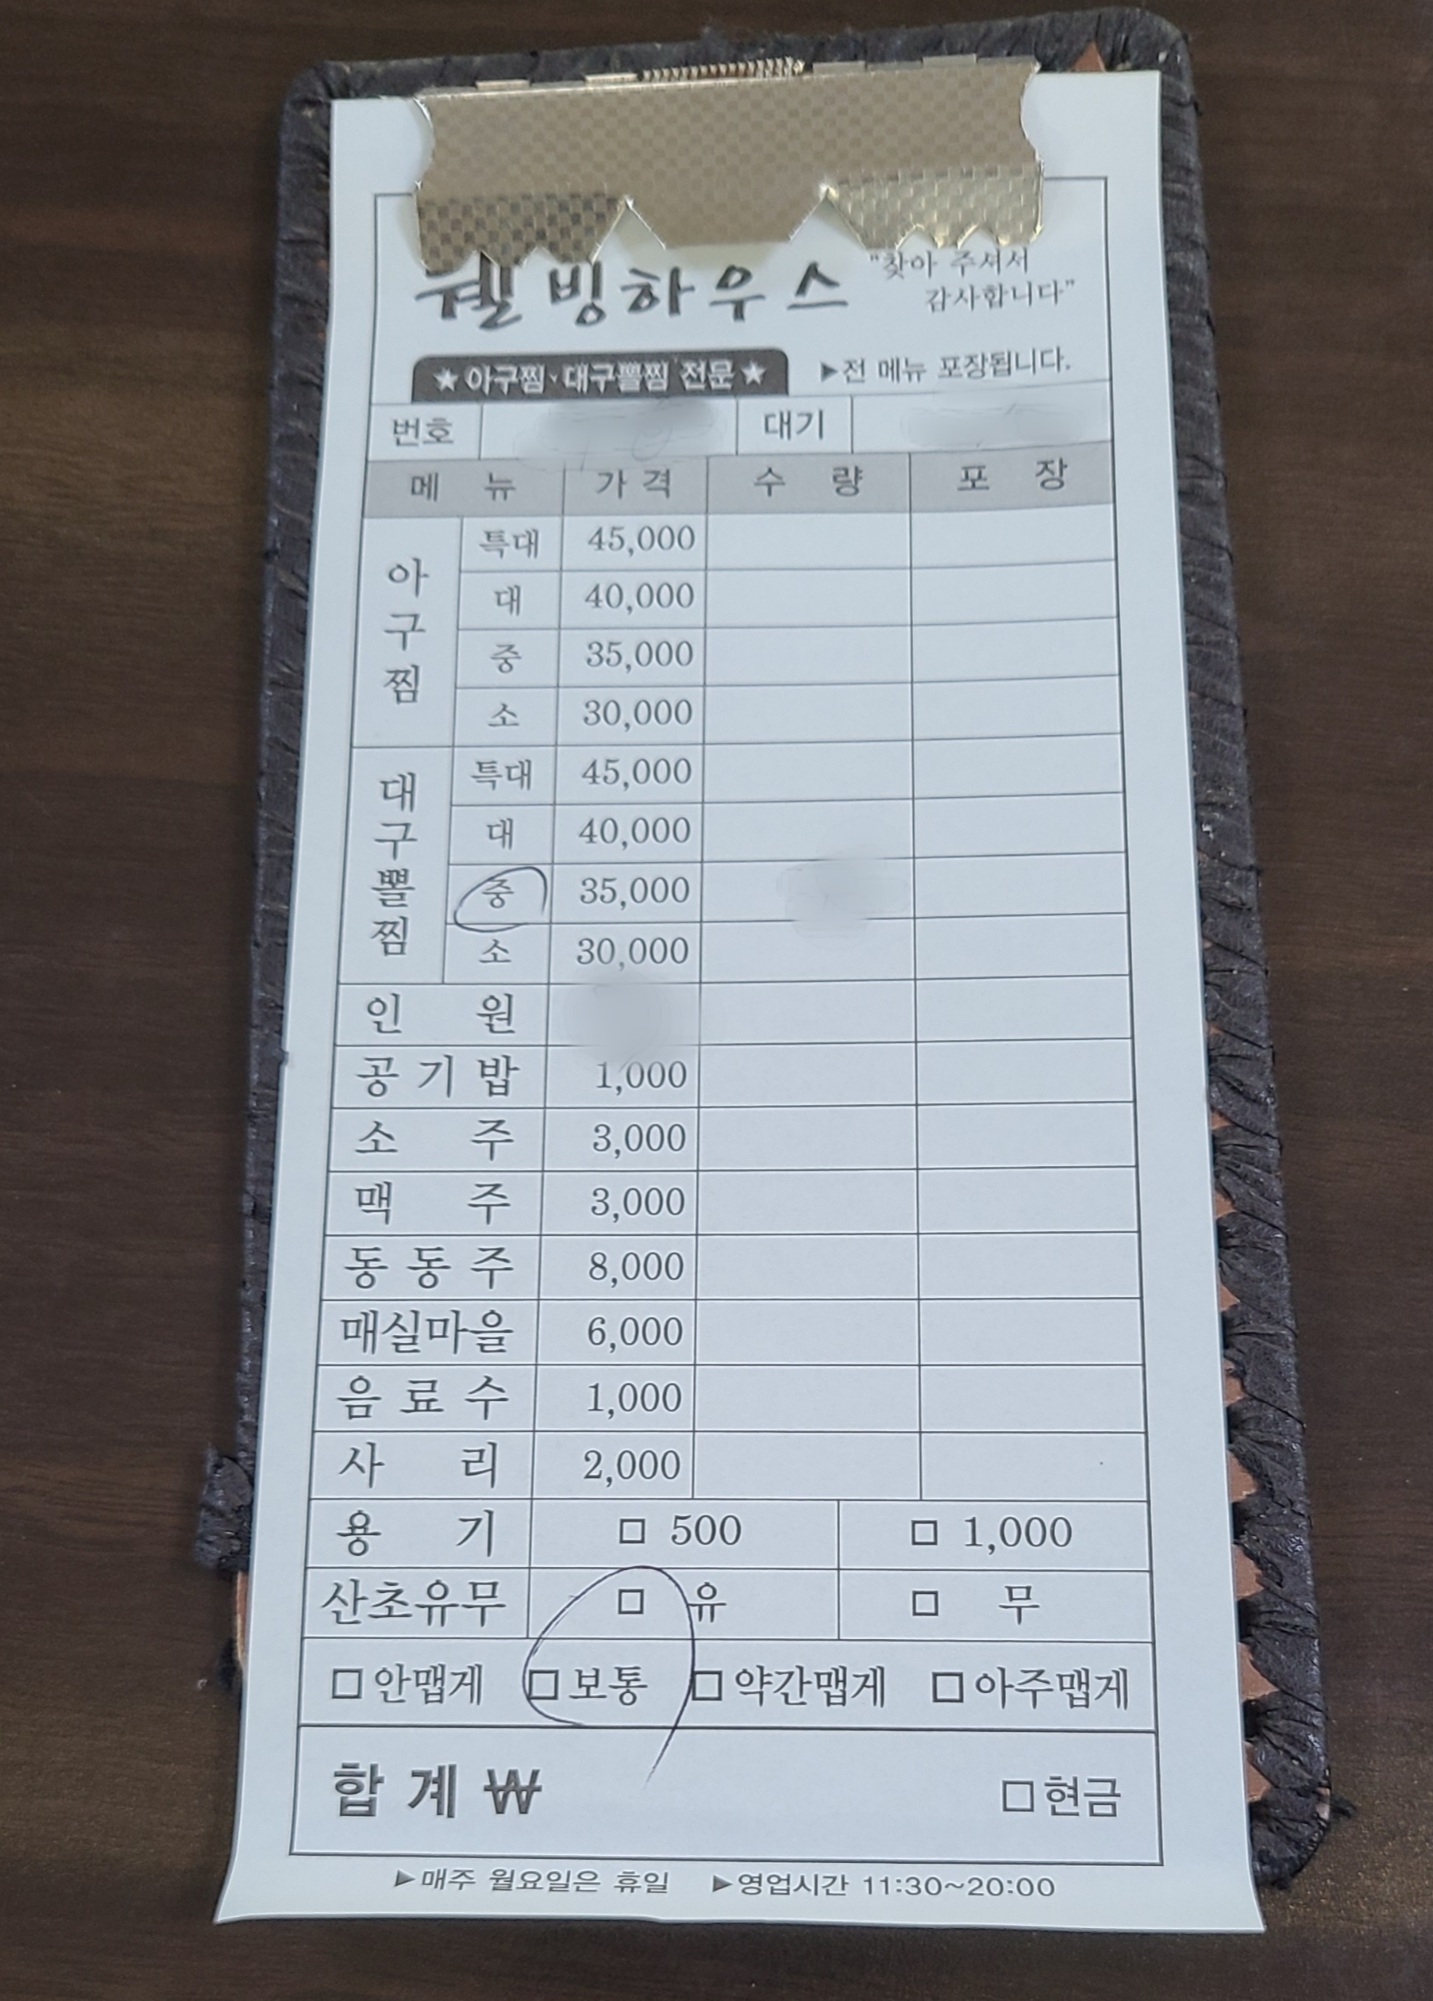 웰빙하우스
"찾아 주셔서
감사합니다"
★ 아구찜·대구뽈찜 전문 ★
▶전 메뉴 포장됩니다.
번호 대기
메 뉴 가 격 수 량 포 장
아구찜
특대 45,000
대 40,000
중 35,000
소 30,000
대구뽈찜
특대 45,000
대 40,000
중 35,000
소 30,000
인 원
공 기 밥 1,000
소 주 3,000
맥 주 3,000
동 동 주 8,000
매실마을 6,000
음 료 수 1,000
사 리 2,000
용 기 □ 500 □ 1,000
산초유무 □ 유 □ 무
□ 안맵게 □ 보통 □ 약간맵게 □ 아주맵게
합 계 ₩ □ 현금
▶매주 월요일은 휴일 ▶영업시간 11:30~20:00